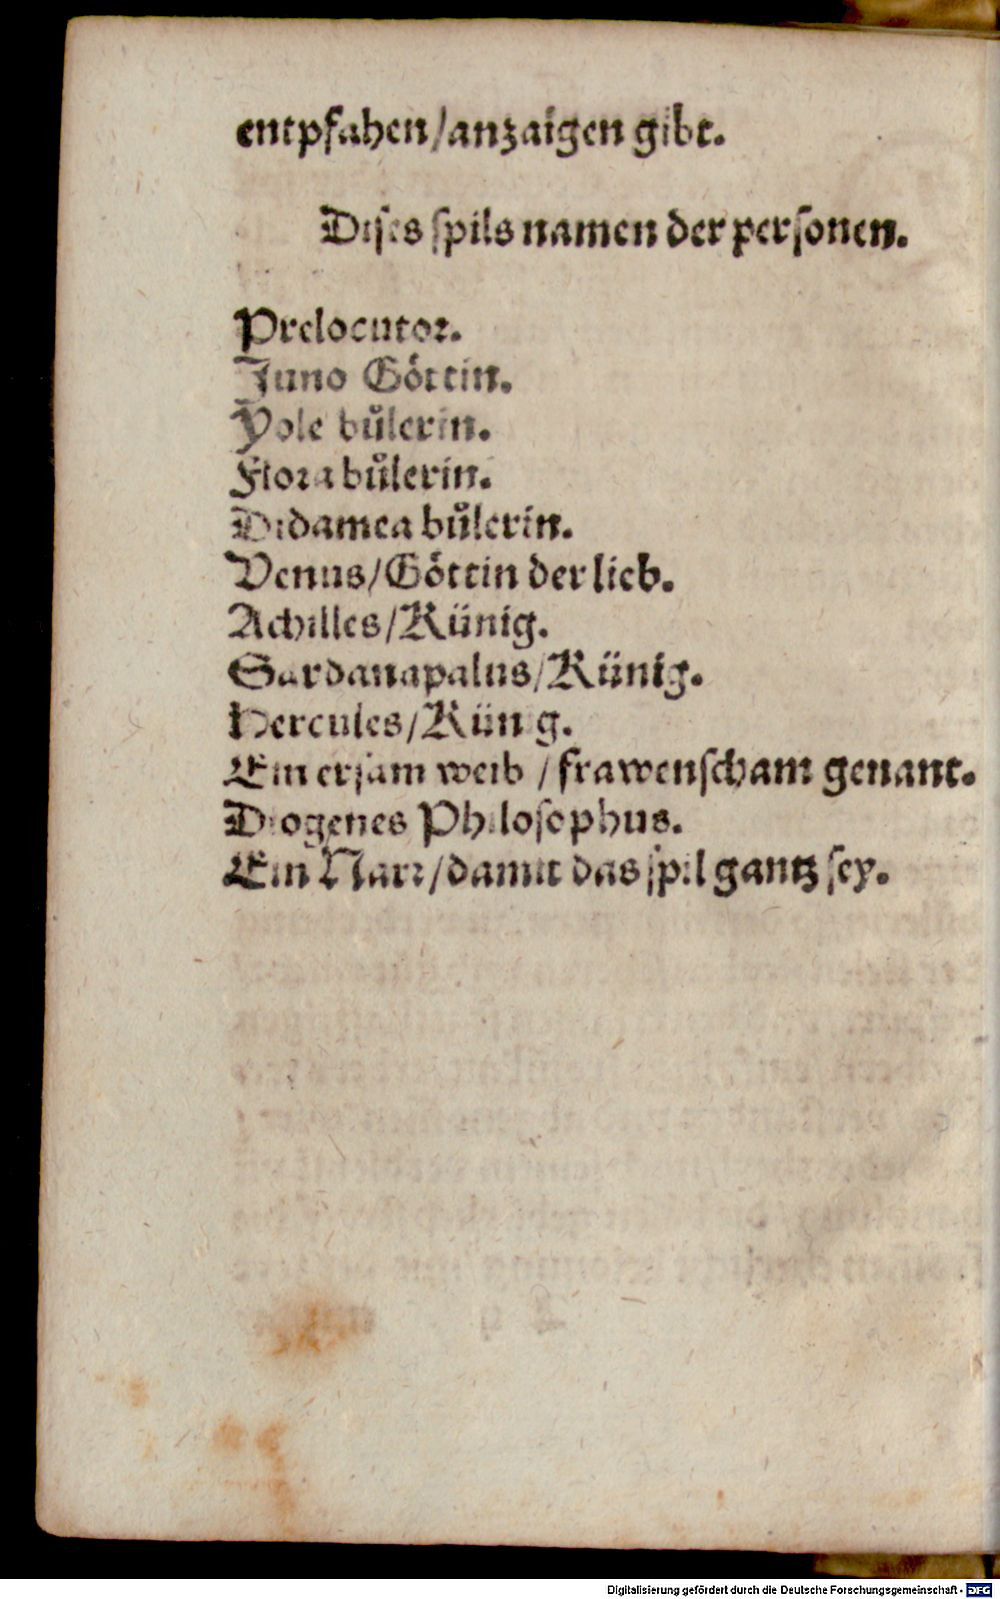 entpfahen/anzaigen gibt.
Dises spils namen der personen.
Prelocutor.
Juno Göttin.
Yole bůlerin.
Flora bůlerin.
Didamea bůlerin.
Venus/Göttin der lieb.
Achilles/Künig.
Sardanapalus/Künig.
Hercules/Künig.
Ein ersam weib /frawenscham genant.
Diogenes Philosophus.
Ein Narr/damit das spil gantz sey.
Digitalisierung gefördert durch die Deutsche Forschungsgemeinschaft - DFG